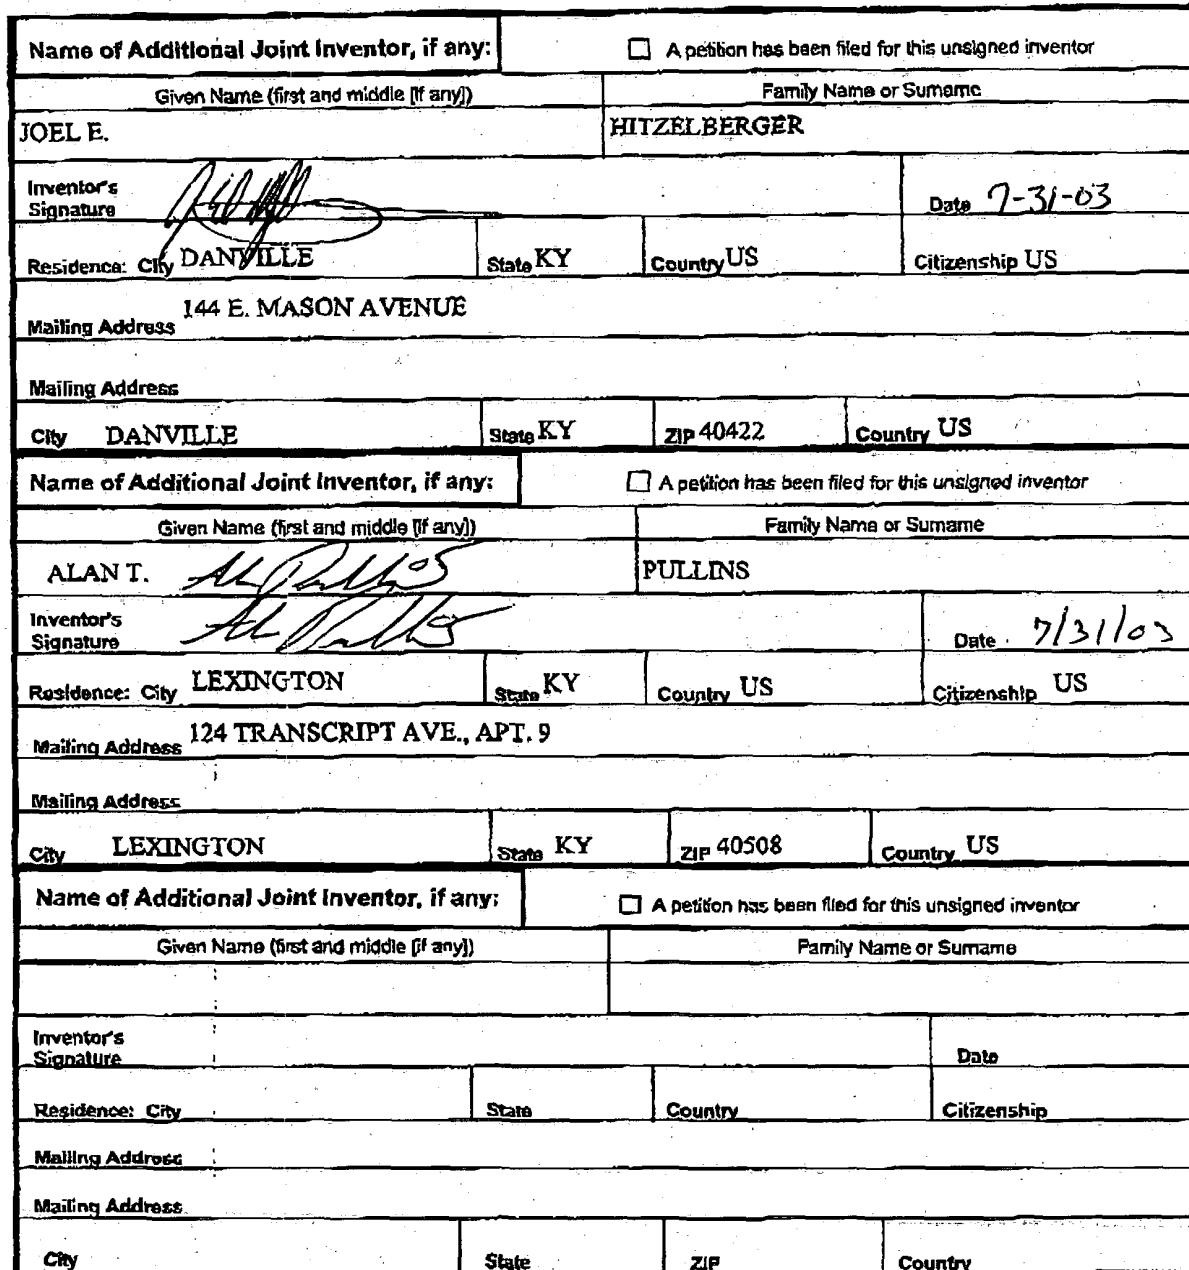 Name of Additional Joint Inventor, if any: ☐ A petition has been filed for this unsigned inventor
Given Name (first and middle [if any]) Family Name or Surname
JOEL E. HITZELBERGER
Inventor's
Signature Date 7-31-03
Residence: City DANVILLE State KY Country US Citizenship US
144 E. MASON AVENUE
Mailing Address
Mailing Address
City DANVILLE State KY ZIP 40422 Country US
Name of Additional Joint Inventor, if any: ☐ A petition has been filed for this unsigned inventor
Given Name (first and middle [if any]) Family Name or Surname
ALAN T. PULLINS
Inventor's
Signature Date 7/31/03
Residence: City LEXINGTON State KY Country US Citizenship US
Mailing Address 124 TRANSCRIPT AVE., APT. 9
Mailing Address
City LEXINGTON State KY ZIP 40508 Country US
Name of Additional Joint Inventor, if any: ☐ A petition has been filed for this unsigned inventor
Given Name (first and middle [if any]) Family Name or Surname
Inventor's
Signature Date
Residence: City State Country Citizenship
Mailing Address
Mailing Address
City State ZIP Country